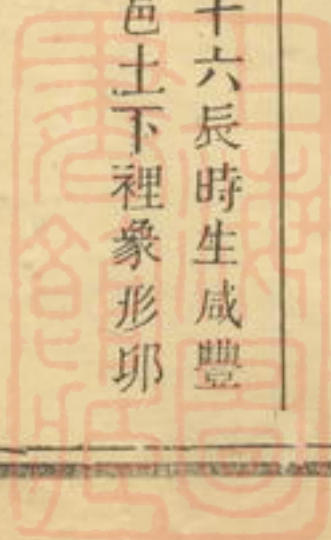 十六辰時生咸豐
邑土下裡象形邜